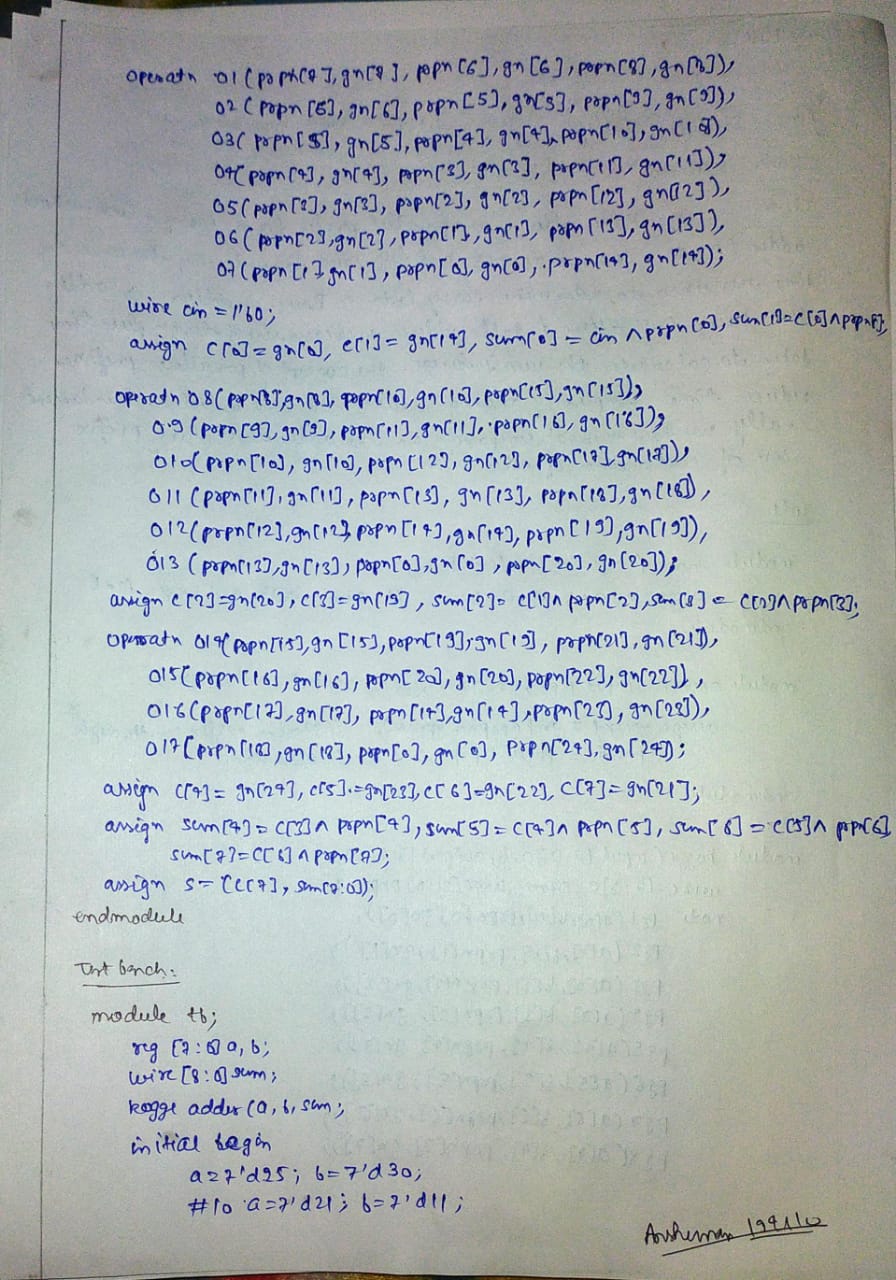 operatn o1(popn[7],gn[7],popn[6],gn[6],popn[8],gn[8]),
o2(popn[6],gn[6],popn[5],gn[5],popn[9],gn[9]),
o3(popn[5],gn[5],popn[4],gn[4],popn[10],gn[10]),
o4(popn[4],gn[4],popn[3],gn[3],popn[11],gn[11]),
o5(popn[3],gn[3],popn[2],gn[2],popn[12],gn[12]),
o6(popn[2],gn[2],popn[1],gn[1],popn[13],gn[13]),
o7(popn[1],gn[1],popn[0],gn[0],popn[14],gn[14]);
wire cin=1'b0;
assign c[0]=gn[0], c[1]=gn[14], sum[0]=cin^popn[0], sum[1]=c[0]^popn[1];
operatn o8(popn[8],gn[8],popn[10],gn[10],popn[15],gn[15]),
o9(popn[9],gn[9],popn[11],gn[11],popn[16],gn[16]),
o10(popn[10],gn[10],popn[12],gn[12],popn[17],gn[17]),
o11(popn[11],gn[11],popn[13],gn[13],popn[18],gn[18]),
o12(popn[12],gn[12],popn[14],gn[14],popn[19],gn[19]),
o13(popn[13],gn[13],popn[0],gn[0],popn[20],gn[20]);
assign c[2]=gn[20], c[3]=gn[19], sum[2]=c[1]^popn[2],sum[3]=c[2]^popn[3];
operatn o14(popn[15],gn[15],popn[19],gn[19],popn[21],gn[21]),
o15(popn[16],gn[16],popn[20],gn[20],popn[22],gn[22]),
o16(popn[17],gn[17],popn[14],gn[14],popn[23],gn[23]),
o17(popn[18],gn[18],popn[0],gn[0],popn[24],gn[24]);
assign c[4]=gn[24], c[5]=gn[23], c[6]=gn[22], c[7]=gn[21];
assign sum[4]=c[3]^popn[4], sum[5]=c[4]^popn[5], sum[6]=c[5]^popn[6]
sum[7]=c[6]^popn[7];
assign s={c[7],sum[7:0]};
endmodule
Test bench:
module tb;
reg [7:0]a,b;
wire [8:0]sum;
kogge adder(a,b,sum);
initial begin
a=7'd25; b=7'd30;
#10 a=7'd21; b=7'd11;